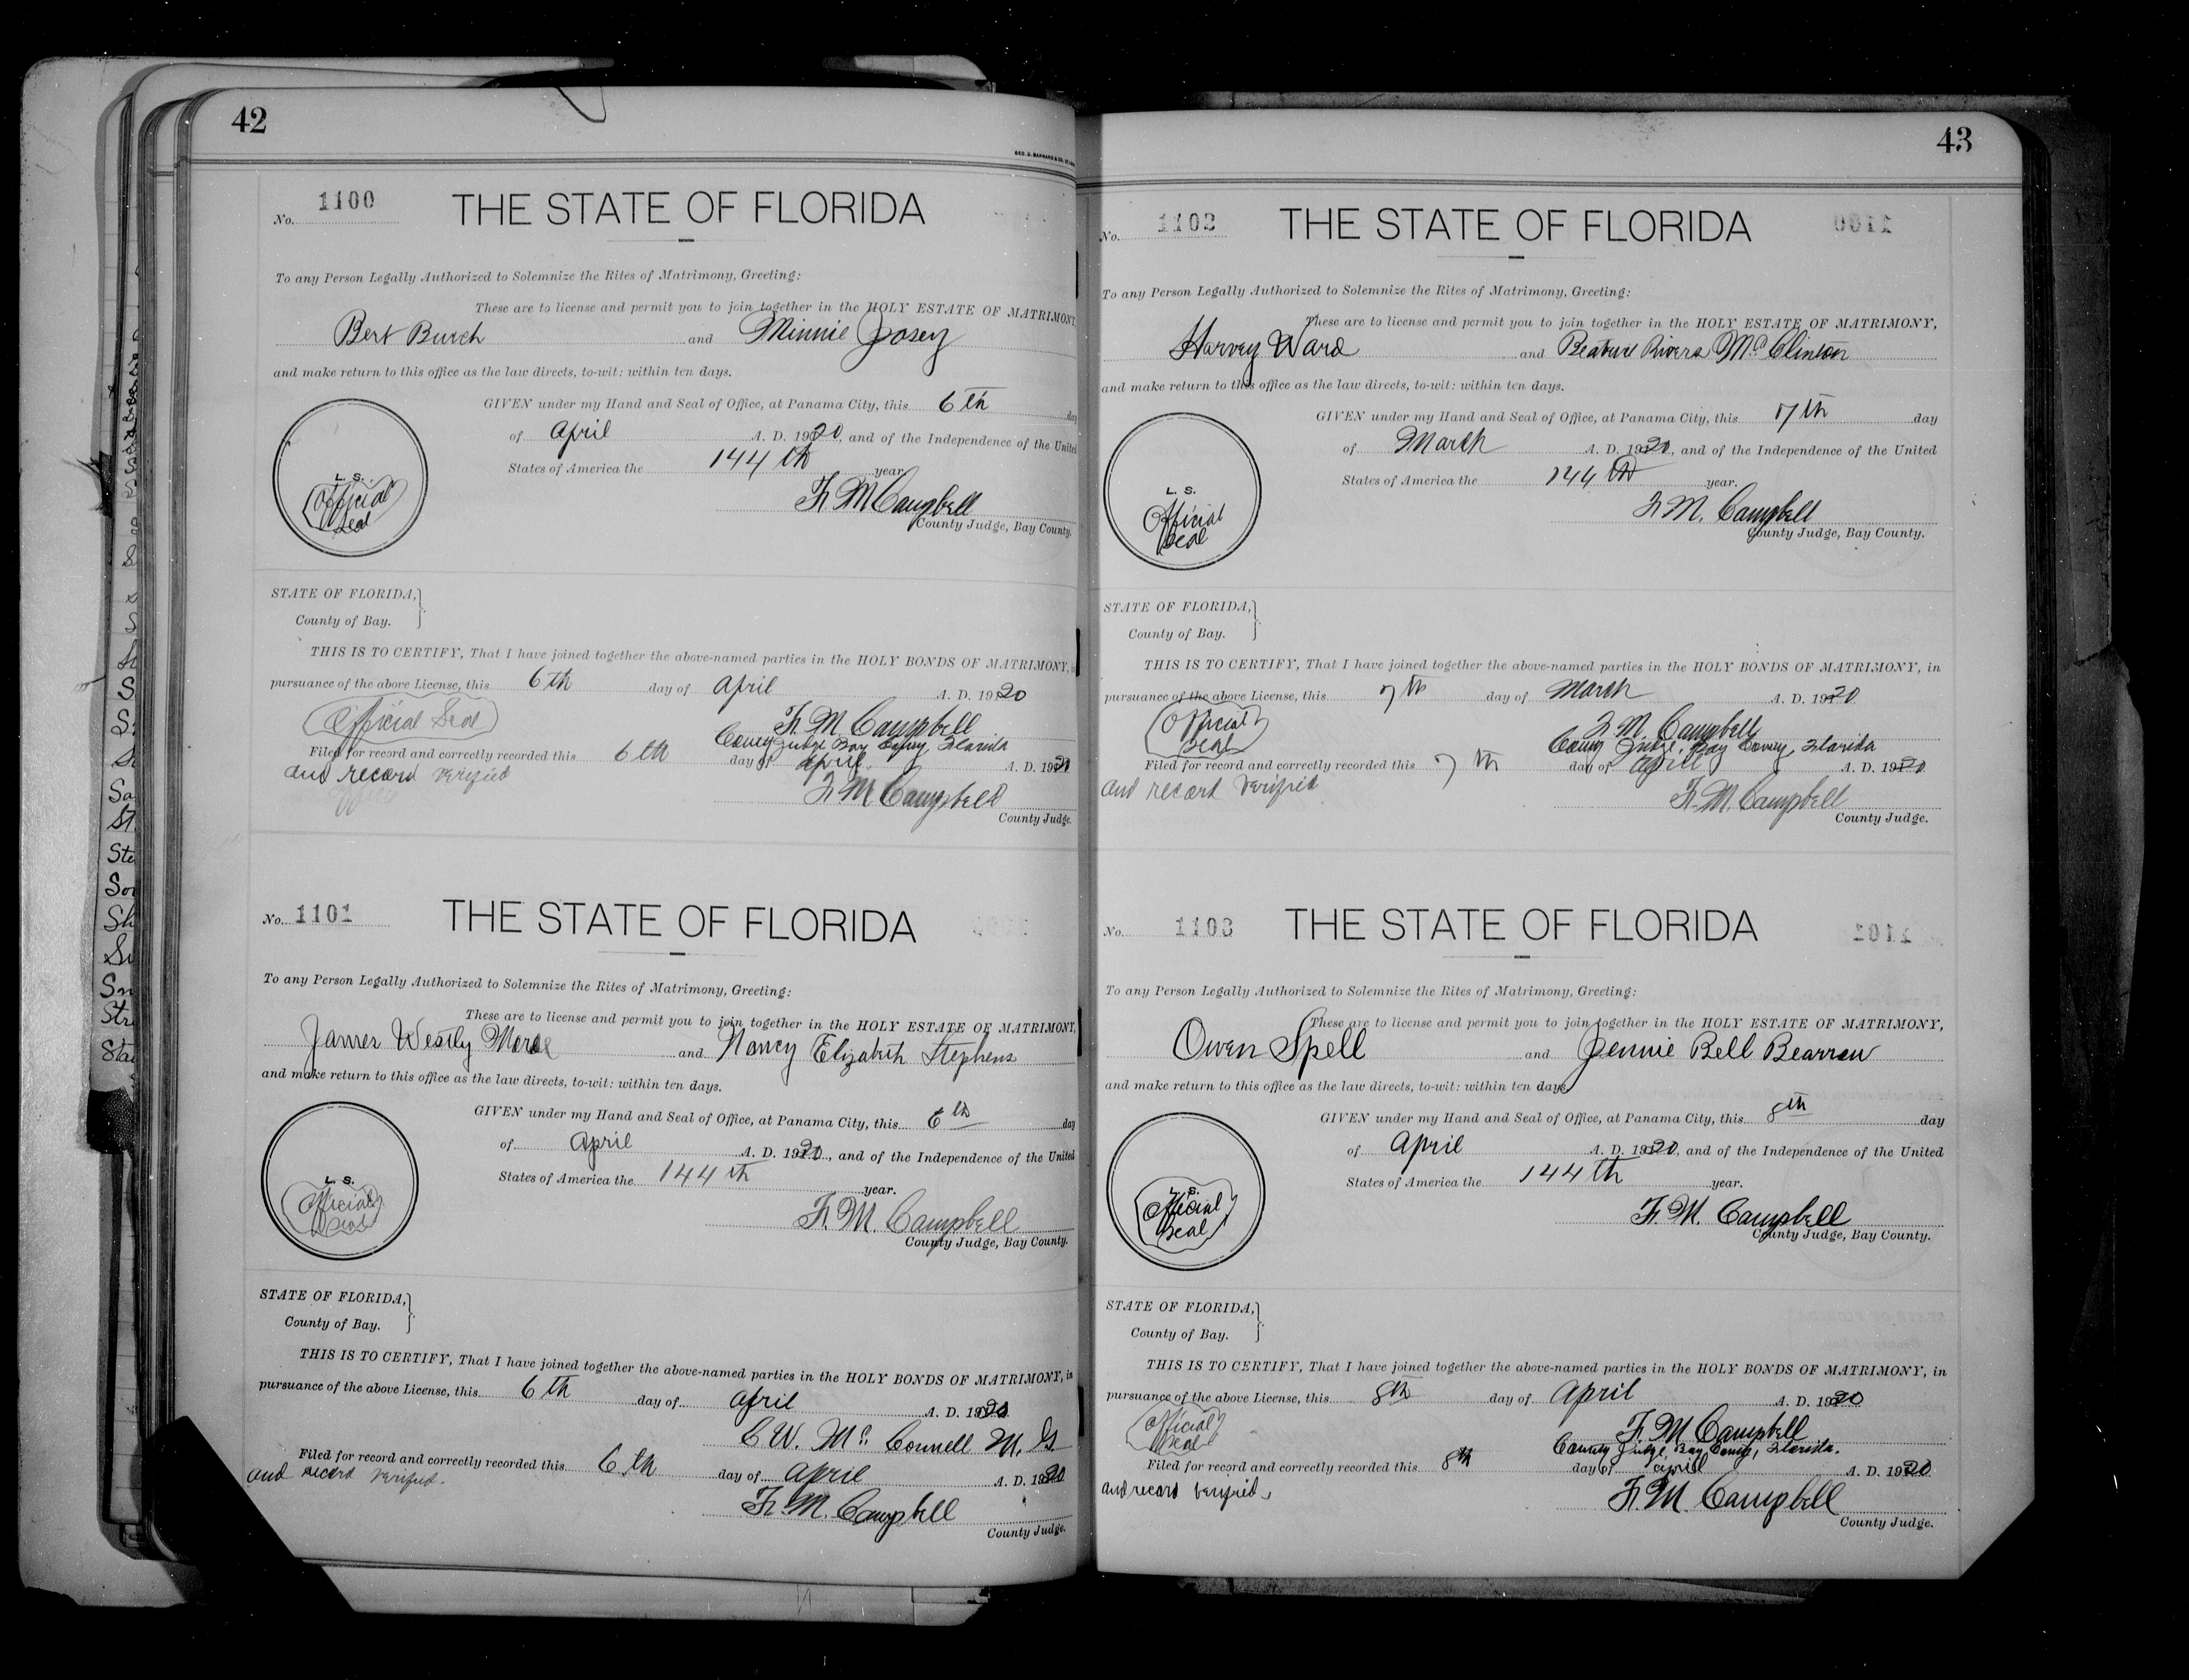 42
GEO. D. BARNARD & CO. ST. LOUIS
No. 1100 THE STATE OF FLORIDA
To any Person Legally Authorized to Solemnize the Rites of Matrimony, Greeting:
These are to license and permit you to join together in the HOLY ESTATE OF MATRIMONY,
Bert Burch and Minnie Josey
and make return to this office as the law directs, to-wit: within ten days.
GIVEN under my Hand and Seal of Office, at Panama City, this 6th day
of April A. D. 1920, and of the Independence of the United
States of America the 144th year.
L. S.
Official
Seal
F. M. Campbell
County Judge, Bay County.
STATE OF FLORIDA,
County of Bay.
THIS IS TO CERTIFY, That I have joined together the above-named parties in the HOLY BONDS OF MATRIMONY, in
pursuance of the above License, this 6th day of April A. D. 1920
Official Seal F. M. Campbell
County Judge Bay County, Florida
Filed for record and correctly recorded this 6th day of April A. D. 1920
and record verified
F. M. Campbell
County Judge.
No. 1101 THE STATE OF FLORIDA
To any Person Legally Authorized to Solemnize the Rites of Matrimony, Greeting:
These are to license and permit you to join together in the HOLY ESTATE OF MATRIMONY,
James Westly and Nancy Elizabeth Stephens
and make return to this office as the law directs, to-wit: within ten days.
GIVEN under my Hand and Seal of Office, at Panama City, this 6th day
of April A. D. 1920, and of the Independence of the United
States of America the 144th year.
L. S.
Official
Seal
F. M. Campbell
County Judge, Bay County.
STATE OF FLORIDA,
County of Bay.
THIS IS TO CERTIFY, That I have joined together the above-named parties in the HOLY BONDS OF MATRIMONY, in
pursuance of the above License, this 6th day of April A. D. 1920
C W. Mc Connell M. G
Filed for record and correctly recorded this 6th day of April A. D. 1920
and record verified.
F. M. Campbell
County Judge.
43
No. 1102 THE STATE OF FLORIDA
To any Person Legally Authorized to Solemnize the Rites of Matrimony, Greeting:
These are to license and permit you to join together in the HOLY ESTATE OF MATRIMONY,
Harvey Ward and Beatrice Rivers Mc Clinton
and make return to this office as the law directs, to-wit: within ten days.
GIVEN under my Hand and Seal of Office, at Panama City, this 7th day
of March A. D. 1920, and of the Independence of the United
States of America the 144th year.
L. S.
Official
Seal
F. M. Campbell
County Judge, Bay County.
STATE OF FLORIDA,
County of Bay.
THIS IS TO CERTIFY, That I have joined together the above-named parties in the HOLY BONDS OF MATRIMONY, in
pursuance of the above License, this 7th day of March A. D. 1920
Official
Seal
F. M. Campbell
County Judge, Bay County, Florida
Filed for record and correctly recorded this 7th day of April A. D. 1920
and record verified
F. M. Campbell
County Judge.
No. 1103 THE STATE OF FLORIDA
To any Person Legally Authorized to Solemnize the Rites of Matrimony, Greeting:
These are to license and permit you to join together in the HOLY ESTATE OF MATRIMONY,
Owen Spell and Jennie Bell Bearren
and make return to this office as the law directs, to-wit: within ten days.
GIVEN under my Hand and Seal of Office, at Panama City, this 8th day
of April A. D. 1920, and of the Independence of the United
States of America the 144th year.
L. S.
Official
Seal
F. M. Campbell
County Judge, Bay County.
STATE OF FLORIDA,
County of Bay.
THIS IS TO CERTIFY, That I have joined together the above-named parties in the HOLY BONDS OF MATRIMONY, in
pursuance of the above License, this 8th day of April A. D. 1920
Official
Seal
F. M. Campbell
County Judge, Bay County, Florida.
Filed for record and correctly recorded this 8th day of April A. D. 1920
and record verified
F. M. Campbell
County Judge.